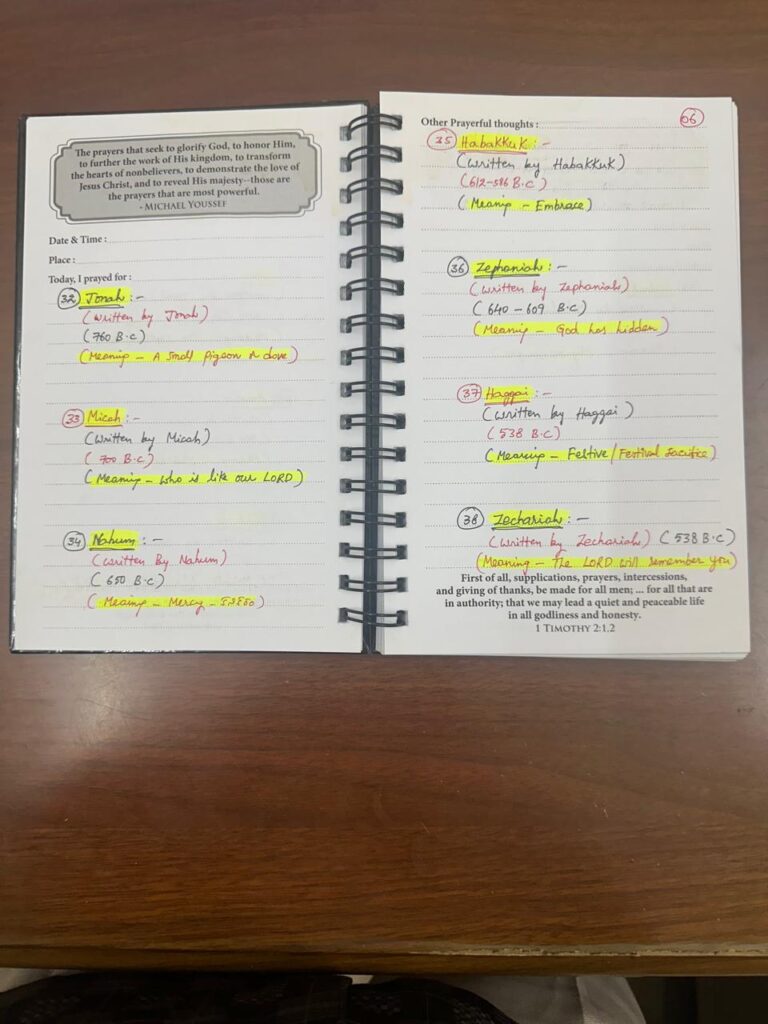 The prayers that seek to glorify God, to honor Him,
to further the work of His kingdom, to transform
the hearts of nonbelievers, to demonstrate the love of
Jesus Christ, and to reveal His majesty--those are
the prayers that are most powerful.
- MICHAEL YOUSSEF
Date & Time :
Place :
Today, I prayed for :
32 Jonah : -
(written by Jonah)
(760 B.C)
(Meaning - A small pigeon or dove)
33 Micah : -
(written by Micah)
(700 B.C)
(Meaning - who is like our LORD)
34 Nahum : -
(written By Nahum)
(650 B.C)
(Meaning - Mercy -
Other Prayerful thoughts :
06
35 Habakkuk : -
(written by Habakkuk)
(612-586 B.C)
(Meaning - Embrace)
36 Zephaniah : -
(written by Zephaniah)
(640 - 609 B.C)
(Meaning - God has hidden)
37 Haggai : -
(written by Haggai)
(538 B.C)
(Meaning - Festive/Festival Sacrifice)
38 Zechariah : -
(written by Zechariah) (538 B.C)
(Meaning - The LORD will remember you)
First of all, supplications, prayers, intercessions,
and giving of thanks, be made for all men; ... for all that are
in authority; that we may lead a quiet and peaceable life
in all godliness and honesty.
1 TIMOTHY 2:1,2